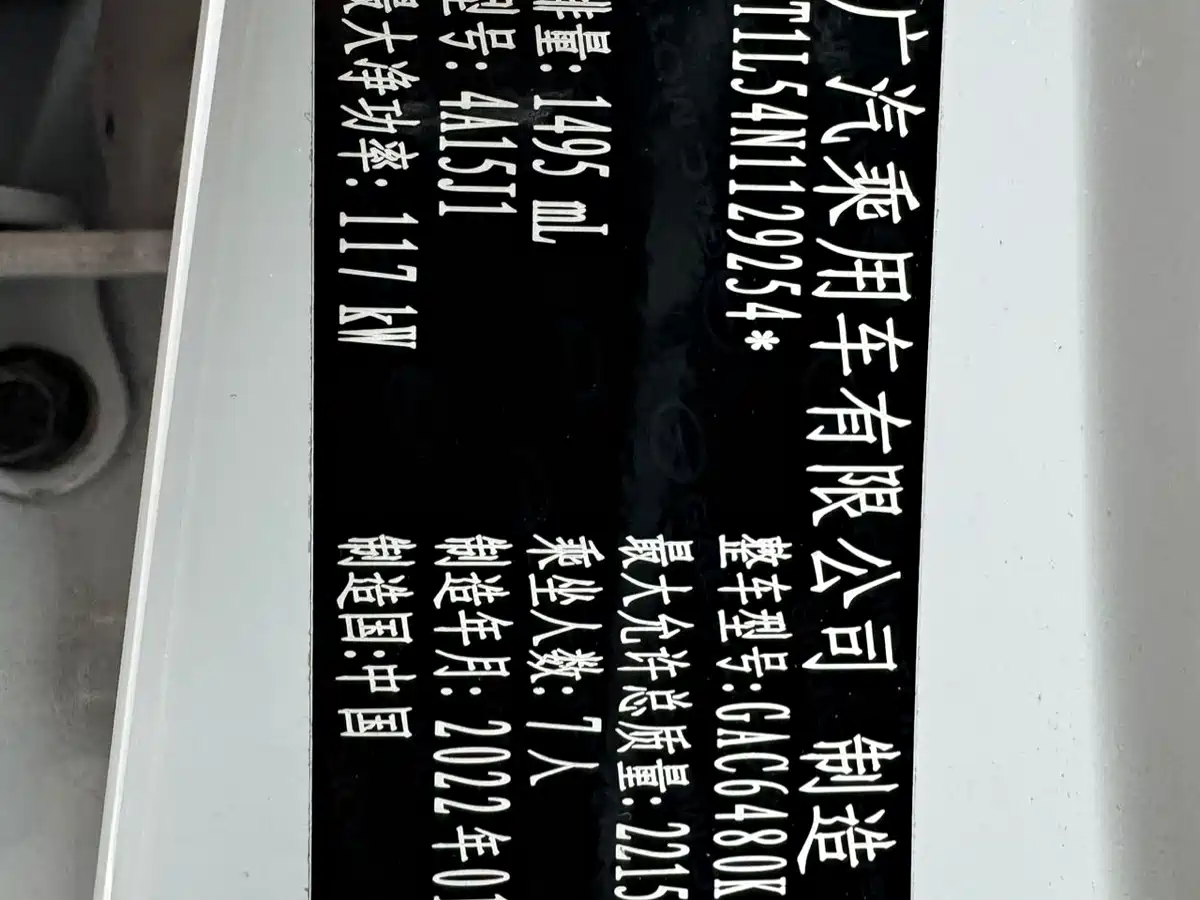 广汽乘用车有限公司 制造
T1L54N1129254*
整车型号:GAC6480K
最大允许总质量:2215
排量:1495 mL
乘坐人数:7人
型号:4A15J1
制造年月:2022年01
最大净功率:117 kW
制造国:中国